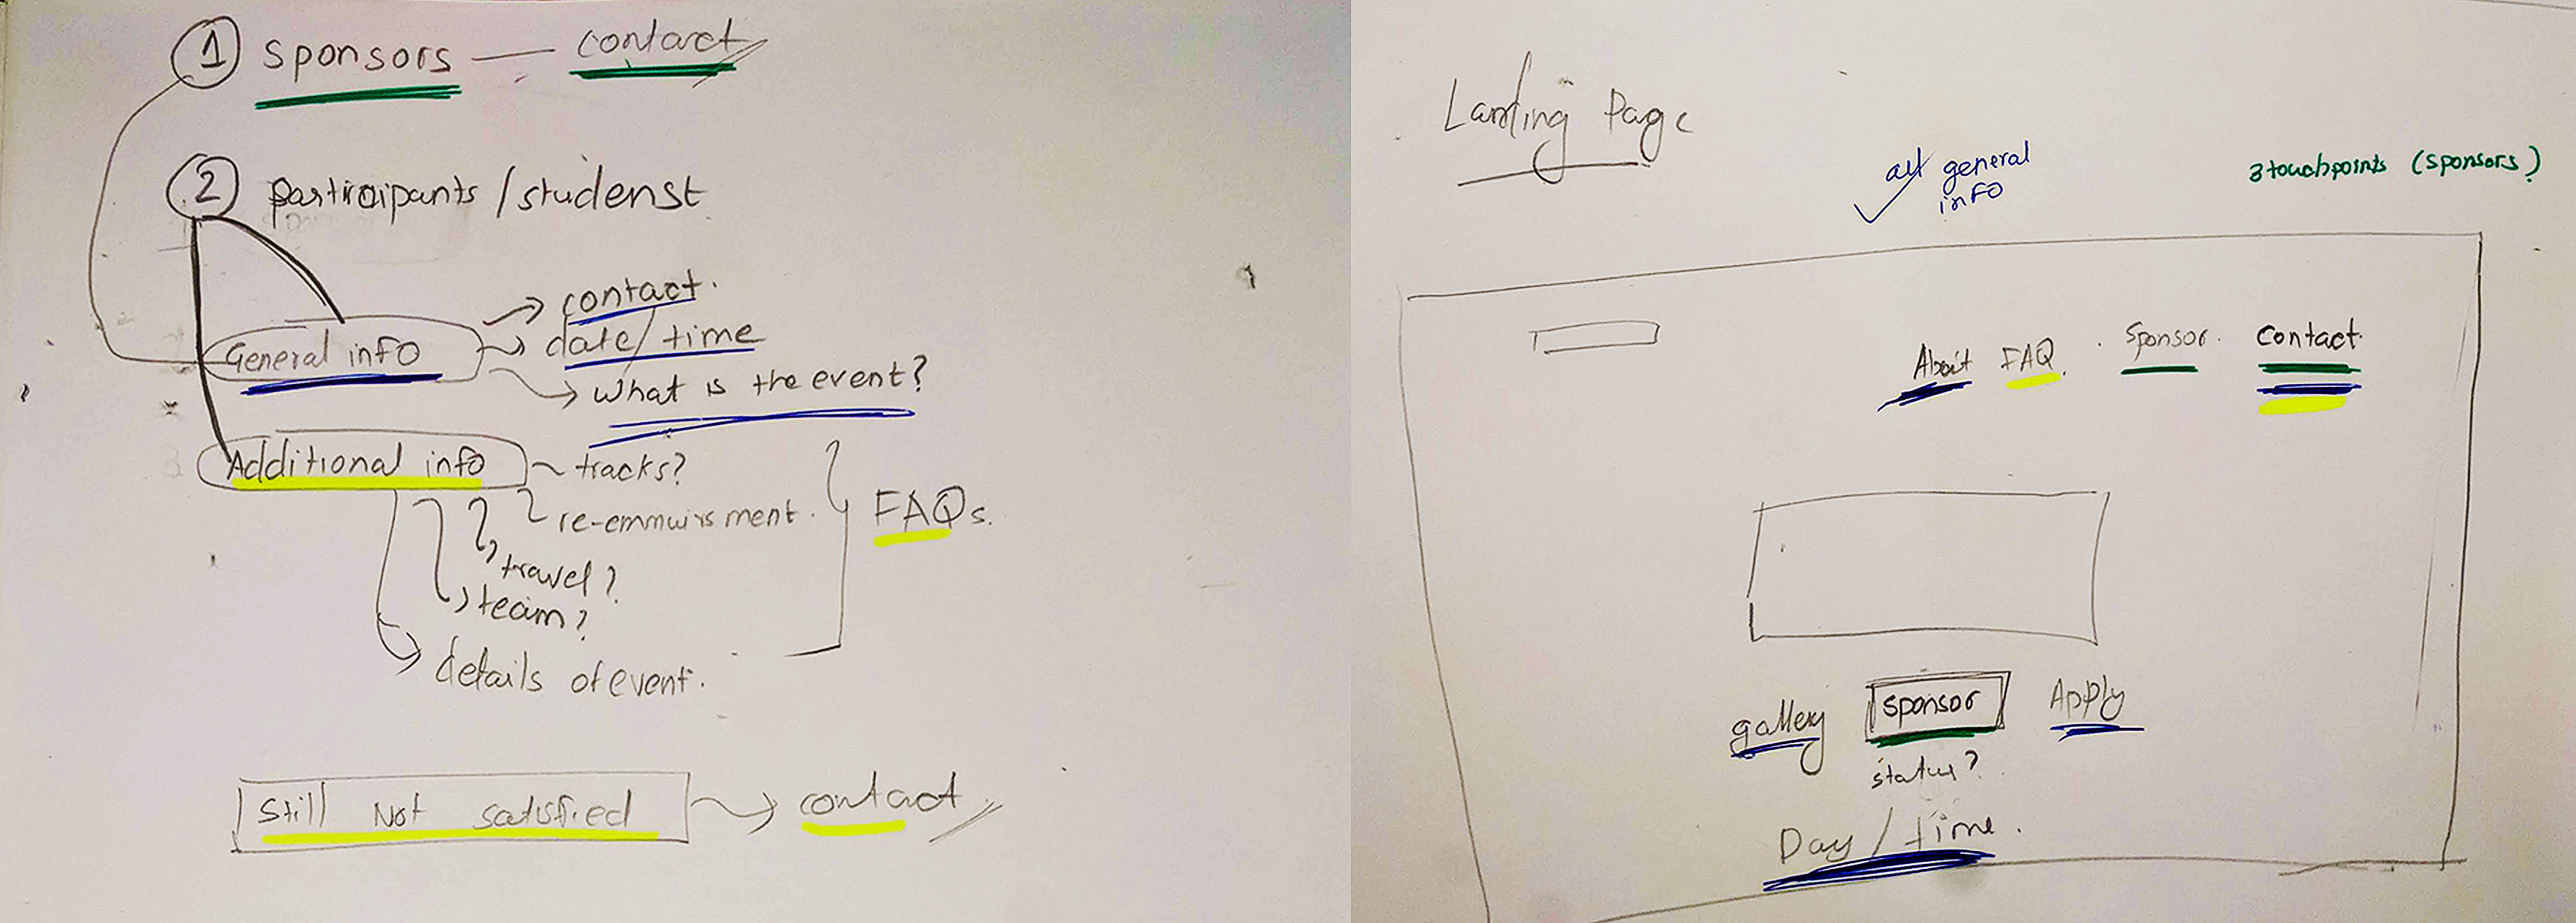 1 sponsors — contact
2 participants / studenst
contact.
date / time
General info
what is the event?
Additional info
tracks?
re-emmuirsment.
FAQs.
travel?
team?
details of event.
Still Not satisfied
contact
Landing Page
all general
info
3 touchpoints (sponsors)
About FAQ. Sponsor. Contact.
gallery sponsor Apply
status?
Day / time.